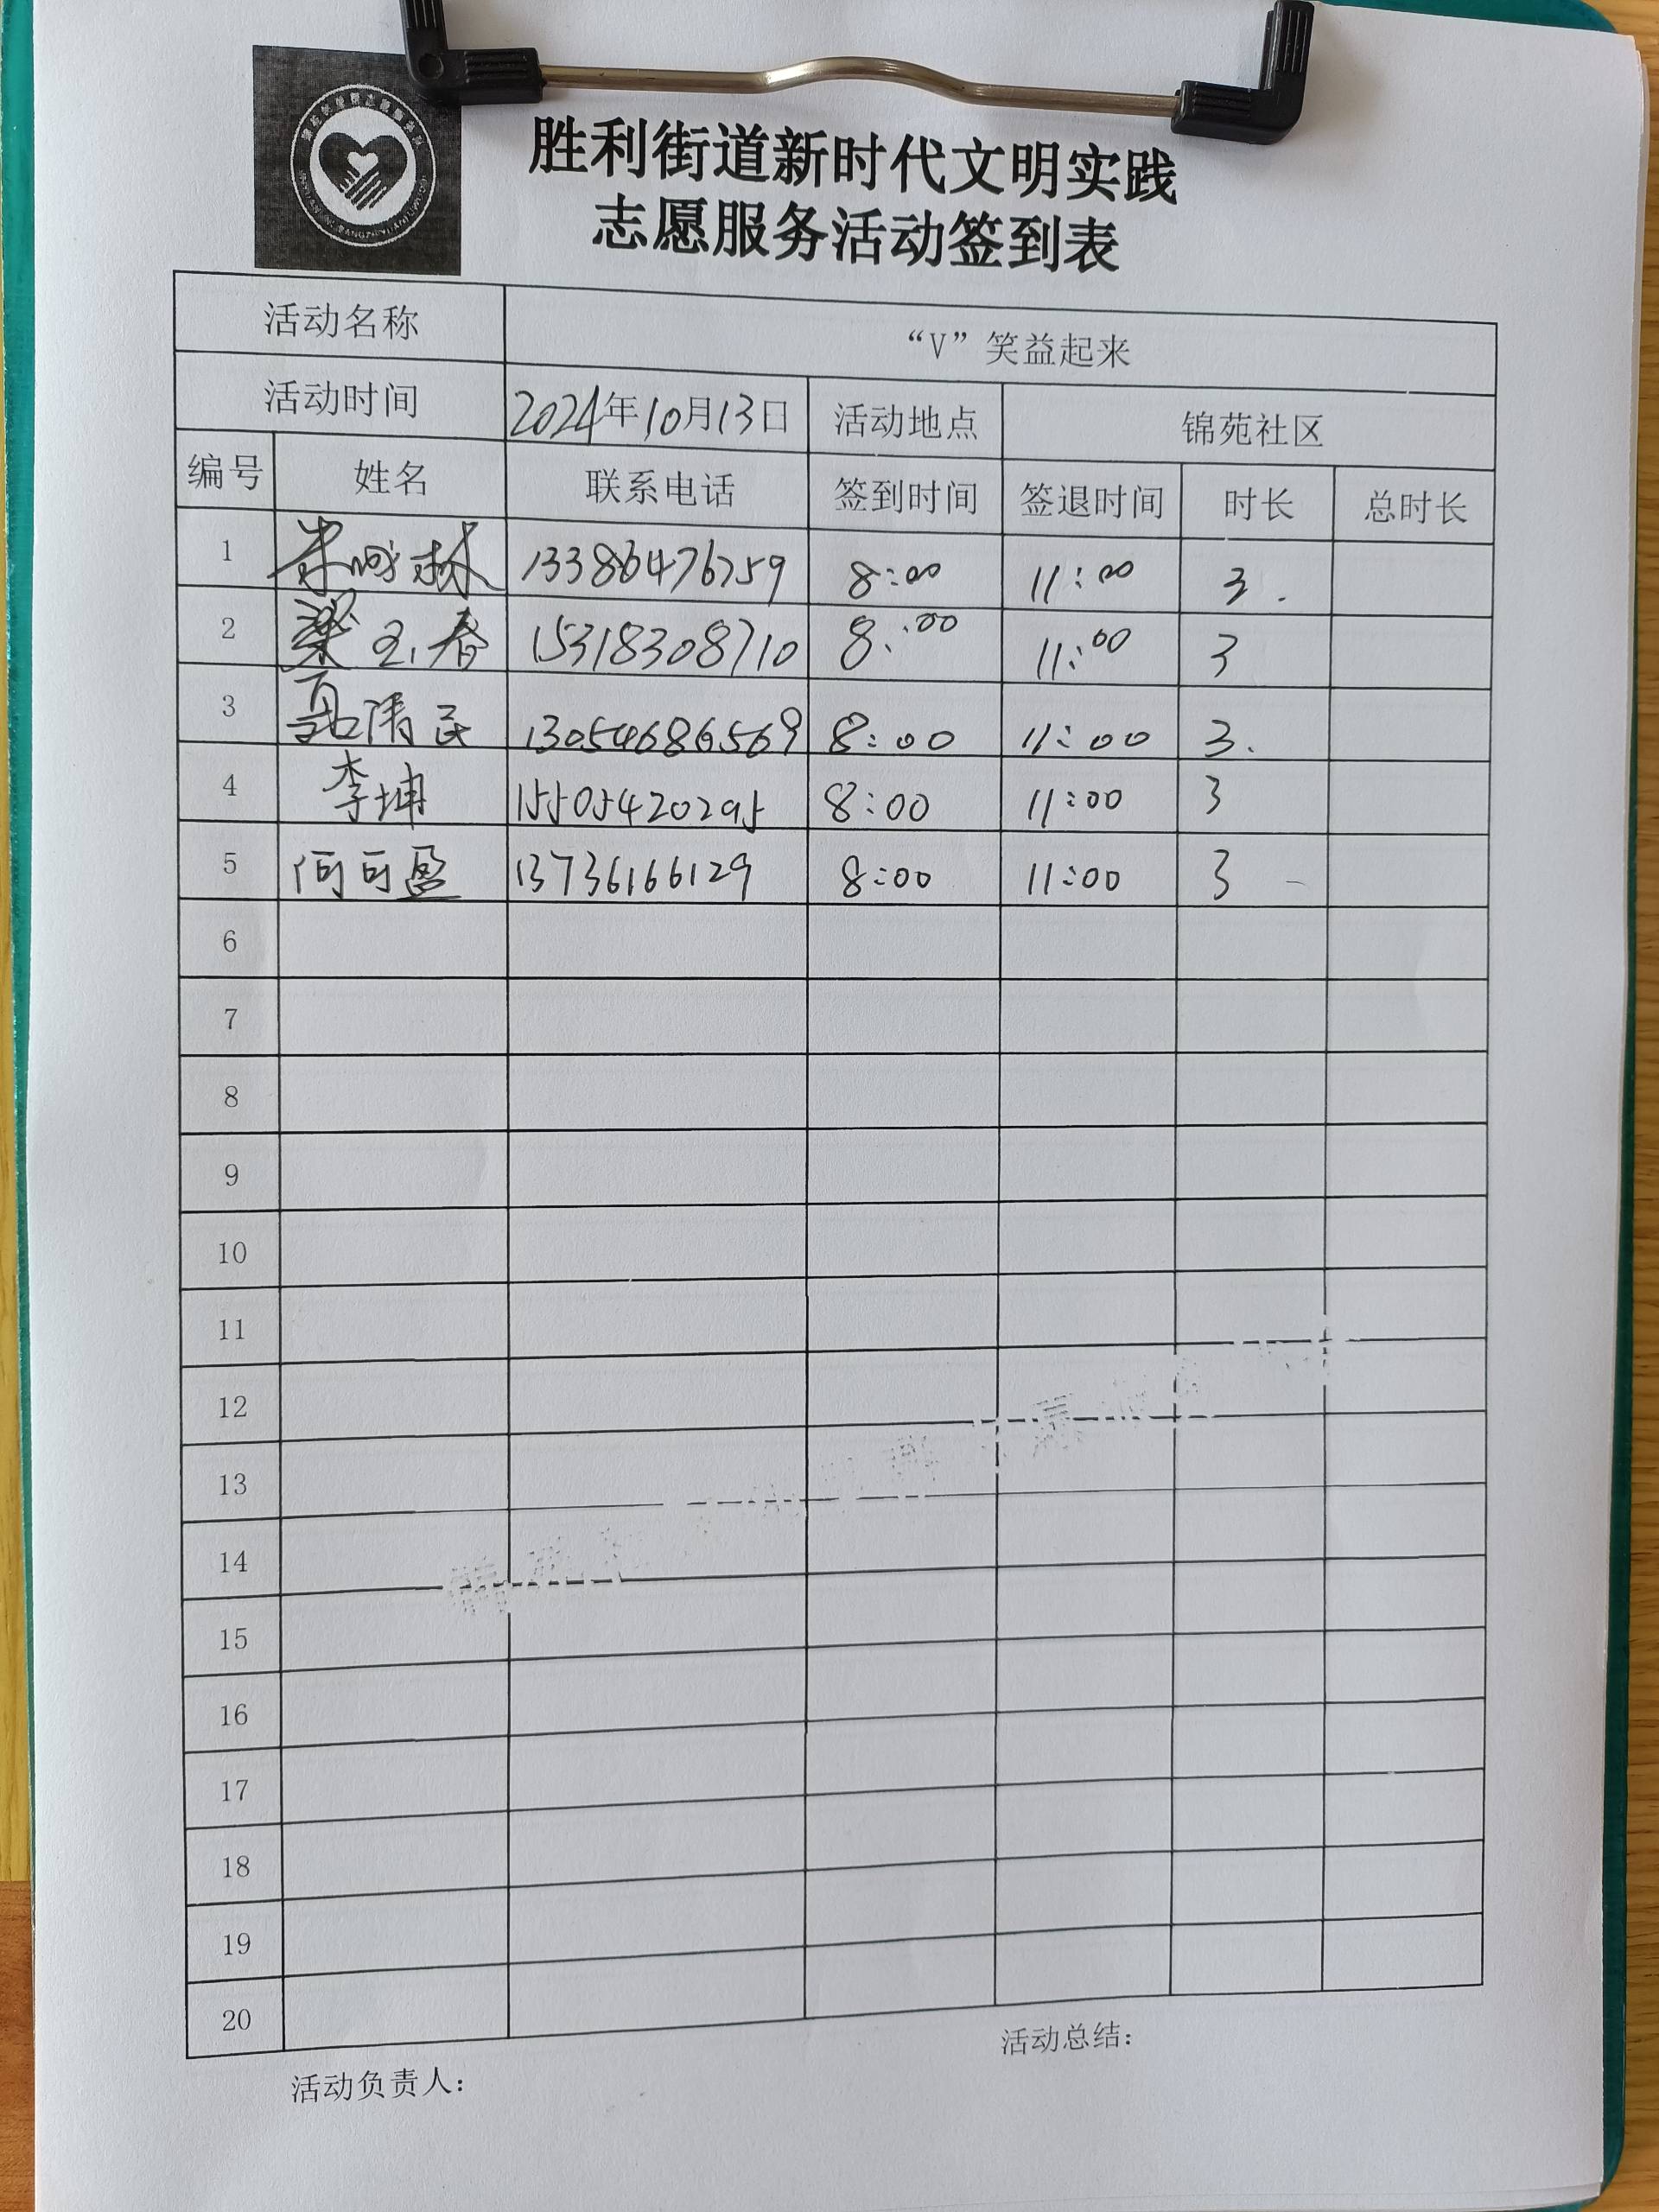 胜利街道新时代文明实践
志愿服务活动签到表
活动名称 “V”笑益起来
活动时间 2024年10月13日 活动地点 锦苑社区
编号 姓名 联系电话 签到时间 签退时间 时长 总时长
1 13386476759 8:00 11:00 3.
2 梁玉春 15318308710 8:00 11:00 3
3 13054686569 8:00 11:00 3.
4 李坤 15505420295 8:00 11:00 3
5 何可盈 13736166129 8:00 11:00 3
6
7
8
9
10
11
12
13
14
15
16
17
18
19
20
活动总结：
活动负责人：